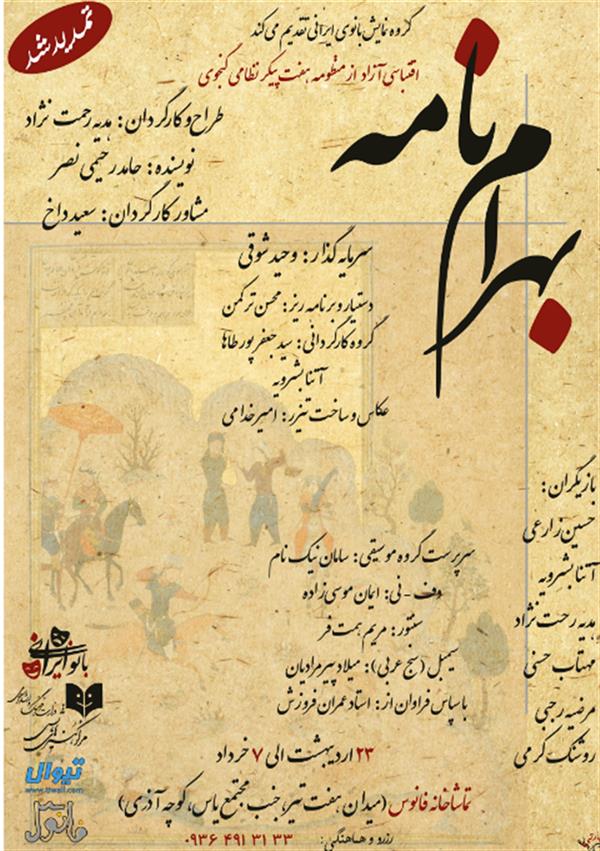 تمدید شد
گروه نمایش بانوی ایرانی تقدیم می کند
اقتباسی آزاد از منظومه هفت پیکر نظامی گنجوی
بهرام نامه
طراح و کارگردان: هدیه رحمت نژاد
نویسنده: حامد رحیمی نصر
مشاور کارگردان: سعید داخ
سرمایه گذار: وحید شوقی
دستیار و برنامه ریز: محسن ترکمن
گروه کارگردانی: سید جعفر پورطاها
آتنا بشرویه
عکاس و ساخت تیزر: امیر خدامی
بازیگران:
حسین زارعی
آتنا بشرویه
هدیه رحمت نژاد
مهتاب حسنی
مرضیه رجبی
روشنک کرمی
سرپرست گروه موسیقی: سامان نیک نام
دف - نی: ایمان موسی زاده
سنتور: مریم همت فر
سیمبل (سنج عربی): میلاد پیرمرادیان
با سپاس فراوان از: استاد عمران فروزش
بانو ایرانی
تیوال
www.tiwall.com
فانوس
۲۳ اردیبهشت الی ۷ خرداد
تماشاخانه فانوس (میدان هفت تیر، جنب مجتمع یاس، کوچه آذری)
رزرو و هماهنگی: ۰۹۳۶ ۴۹۱ ۳۱ ۳۳